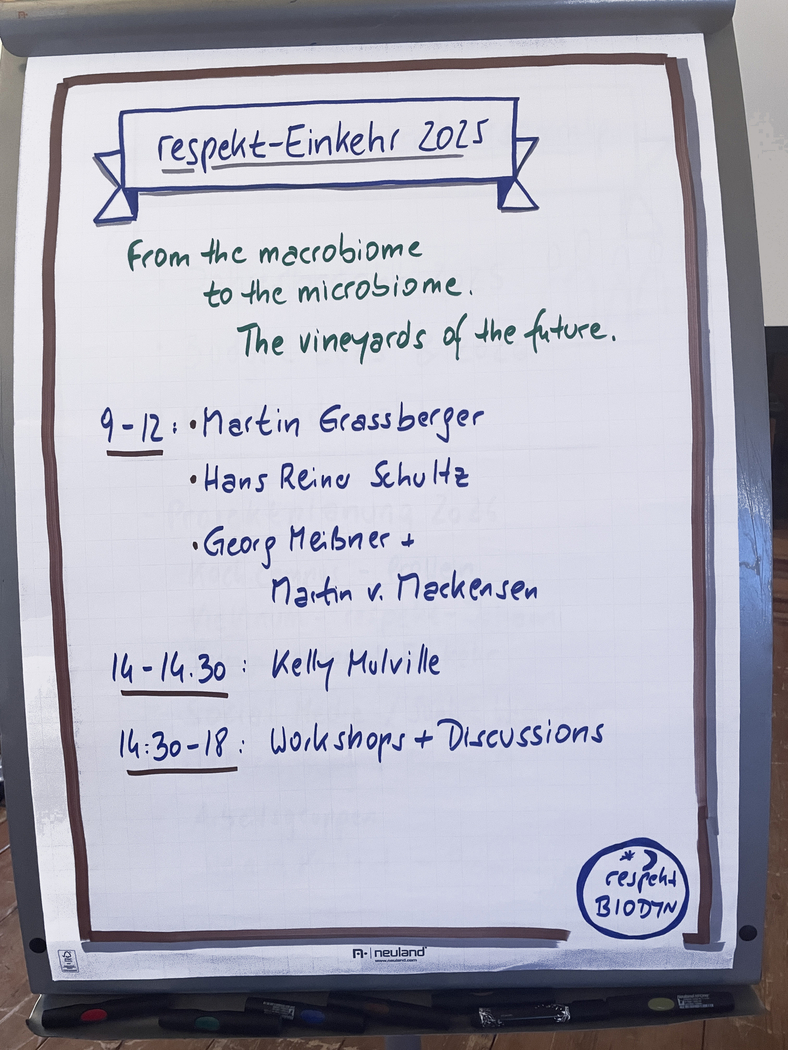 respekt-Einkehr 2025
From the macrobiome
to the microbiome.
The vineyards of the future.
9-12: • Martin Grassberger
• Hans Reiner Schultz
• Georg Meißner +
Martin v. Mackensen
14-14.30: Kelly Mulville
14:30-18: Workshops + Discussions
respekt
BIODYN
neuland
www.neuland.com